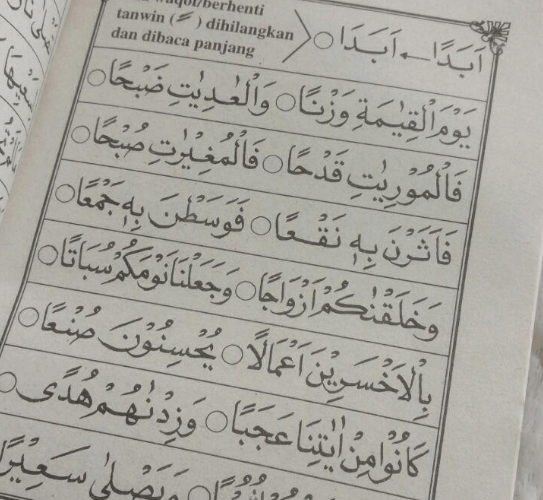 waqof/berhenti
tanwin (ـً) dihilangkan
dan dibaca panjang
اَبَدًا ← اَبَدَا ○
يَوْمَ الْقِيٰمَةِ وَزْنًا ○ وَالْعٰدِيٰتِ ضَبْحًا ○
فَالْمُوْرِيٰتِ قَدْحًا ○ فَالْمُغِيْرٰتِ صُبْحًا ○
فَاَثَرْنَ بِهٖ نَقْعًا ○ فَوَسَطْنَ بِهٖ جَمْعًا ○
وَخَلَقْنٰكُمْ اَزْوَاجًا ○ وَجَعَلْنَا نَوْمَكُمْ سُبَاتًا ○
بِالْاَخْسَرِيْنَ اَعْمَالًا ○ يُحْسِنُوْنَ صُنْعًا ○
كَانُوْا مِنْ اٰيٰتِنَا عَجَبًا ○ وَزِدْنٰهُمْ هُدًى ○
وَيَصْلٰى سَعِيْرًا